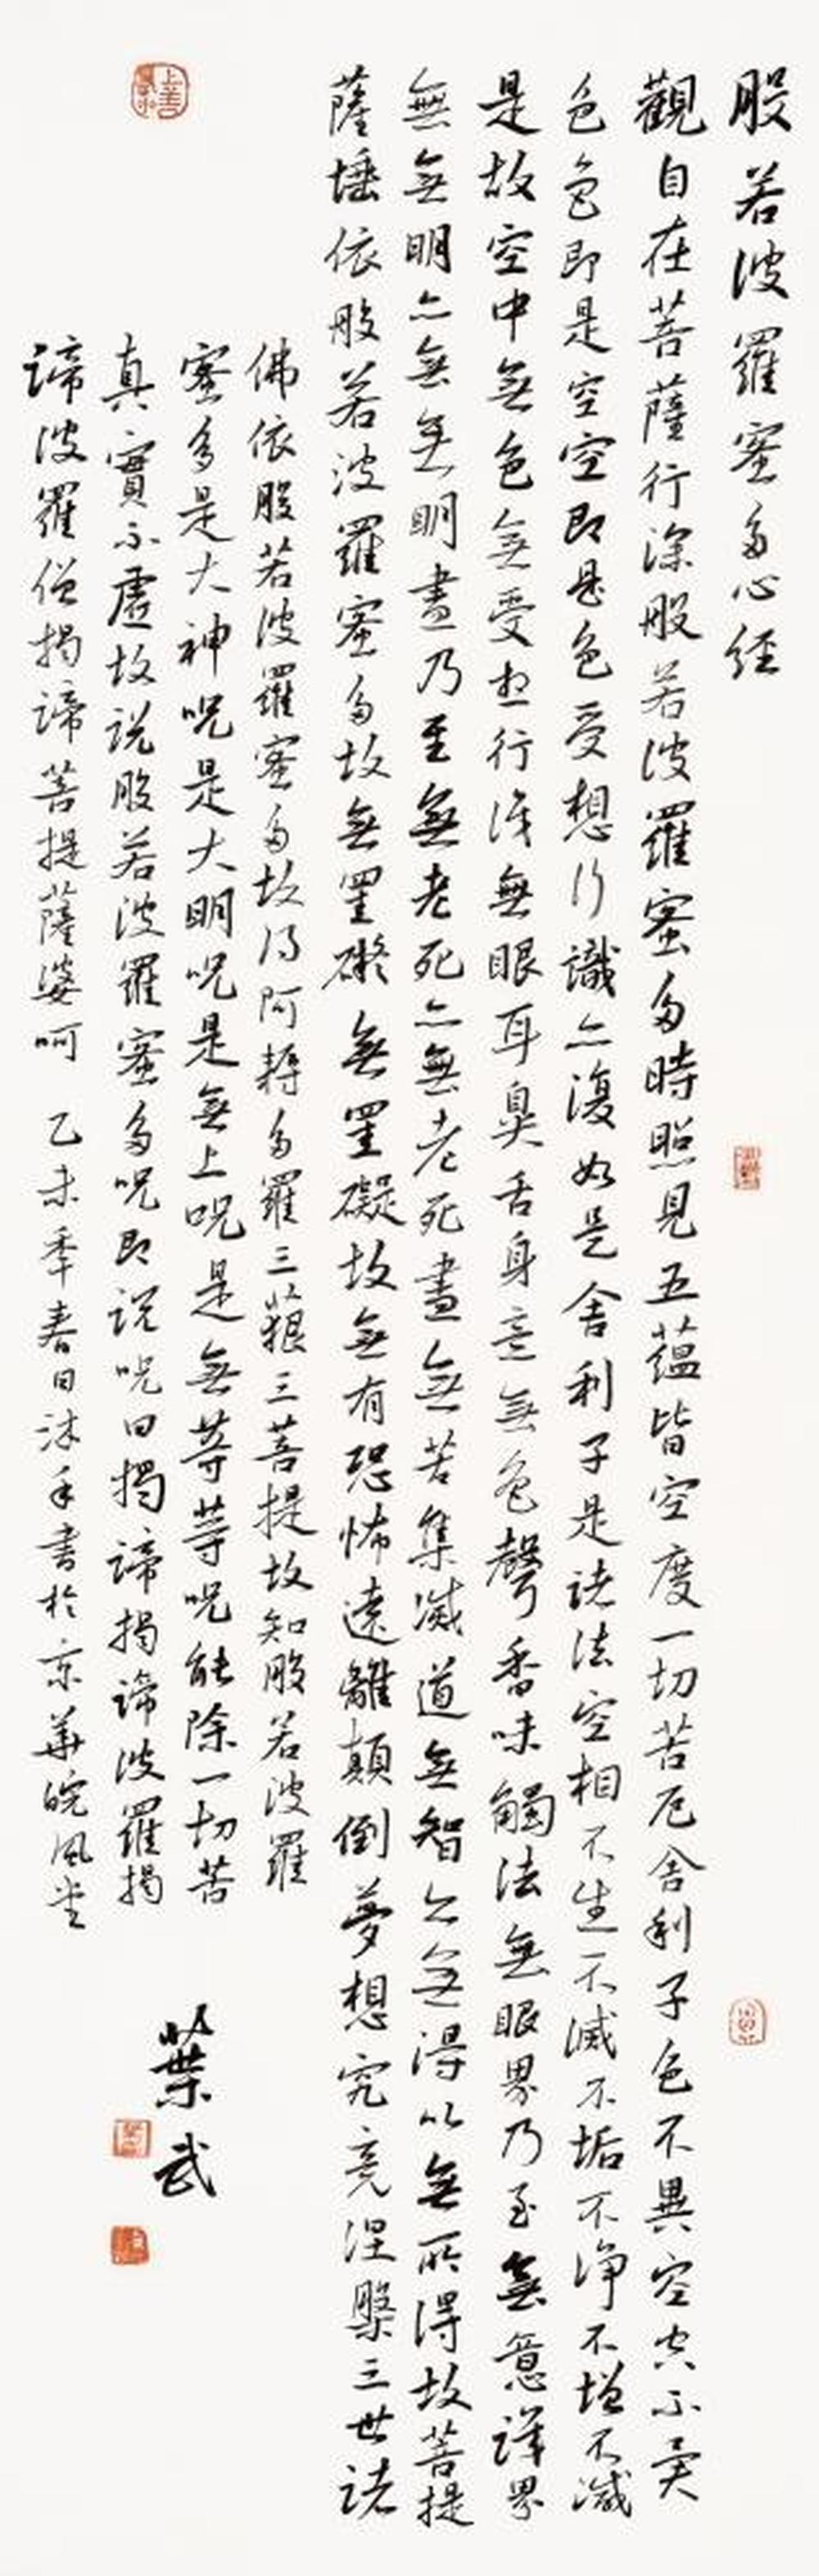 般若波羅蜜多心經
觀自在菩薩行深般若波羅蜜多時照見五蘊皆空度一切苦厄舍利子色不異空空不異
色色即是空空即是色受想行識亦復如是舍利子是諸法空相不生不滅不垢不淨不增不減
是故空中無色無受想行識無眼耳鼻舌身意無色聲香味觸法無眼界乃至無意識界
無無明亦無無明盡乃至無老死亦無老死盡無苦集滅道無智亦無得以無所得故菩提
薩埵依般若波羅蜜多故無罣礙無罣礙故無有恐怖遠離顛倒夢想究竟涅槃三世諸
佛依般若波羅蜜多故得阿耨多羅三藐三菩提故知般若波羅
蜜多是大神呪是大明呪是無上呪是無等等呪能除一切苦
真實不虛故說般若波羅蜜多呪即說呪曰揭諦揭諦波羅揭
諦波羅僧揭諦菩提薩婆呵 乙未季春日沐手書於京華皖風堂
葉武
上善